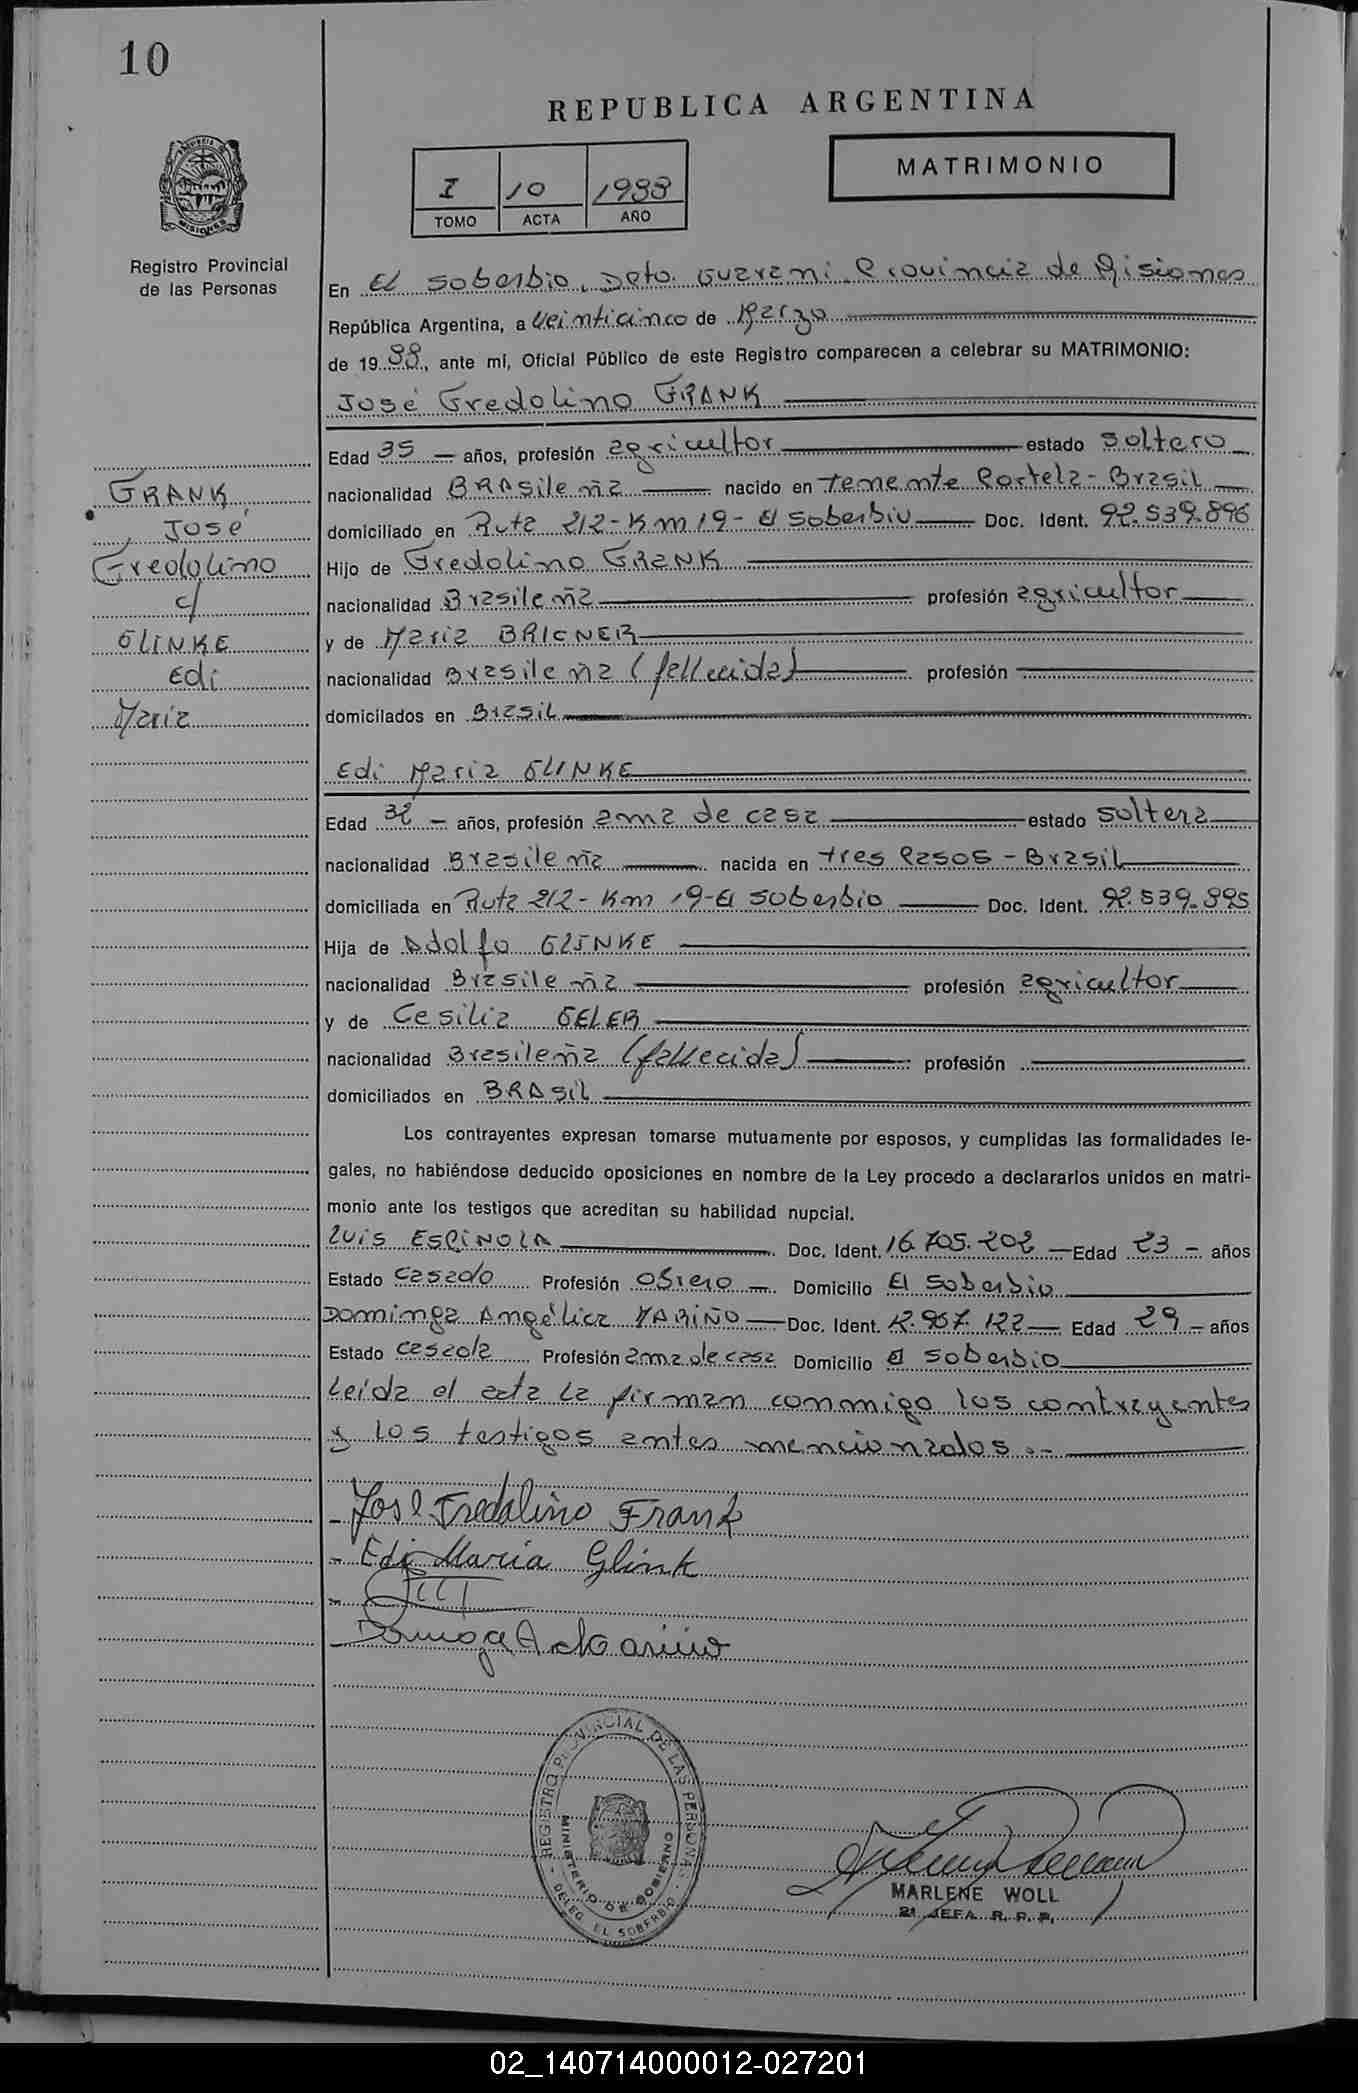 10
REPUBLICA ARGENTINA
MATRIMONIO
I 10 1988
TOMO ACTA AÑO
Registro Provincial
de las Personas
En El Soberbio, Dpto. Guarani Provincia de Misiones
República Argentina, a Veinticinco de Marzo
de 1988, ante mí, Oficial Público de este Registro comparecen a celebrar su MATRIMONIO:
José Fredolino FRANK
Edad 35 años, profesión agricultor estado soltero
nacionalidad BRAsileña nacido en Tenente Portela - Brasil
domiciliado en Ruta 212 - Km 19 - El Soberbio Doc. Ident. 92.539.896
Hijo de Fredolino FRANK
nacionalidad Brasileña profesión agricultor
y de Maria BRICNER
nacionalidad Brasileña (fallecida) profesión
domicilados en Brasil
FRANK
José
Fredolino
c/
GLINKE
Edi
Maria
Edi Maria GLINKE
Edad 32 años, profesión ama de casa estado soltera
nacionalidad Brasileña nacida en tres Pasos - Brasil
domiciliada en Ruta 212 - Km 19 - El Soberbio Doc. Ident. 92.539.895
Hija de Adolfo GLINKE
nacionalidad Brasileña profesión agricultor
y de Cesilia GELER
nacionalidad Brasileña (fallecida) profesión
domiciliados en BRAsil
Los contrayentes expresan tomarse mutuamente por esposos, y cumplidas las formalidades le-
gales, no habiéndose deducido oposiciones en nombre de la Ley procedo a declararlos unidos en matri-
monio ante los testigos que acreditan su habilidad nupcial.
Luis ESPiNOLA Doc. Ident. 16.705.202 Edad 23 - años
Estado casado Profesión Obrero Domicilio El Soberbio
Dominga Angélica MARIÑO Doc. Ident. Edad 29 - años
Estado casada Profesión ama de casa Domicilio El Soberbio
Leida el acta la firman conmigo los contrayentes
y los testigos antes mencionados.-
- José Fredolino Frank
- Edi Maria Glink
- Dominga A Mariño
REGISTRO PROVINCIAL DE LAS PERSONAS
MINISTERIO DE GOBIERNO
DELEG. EL SOBERBIO
MARLENE WOLL
2ª JEFA R. P. P.
02_140714000012-027201